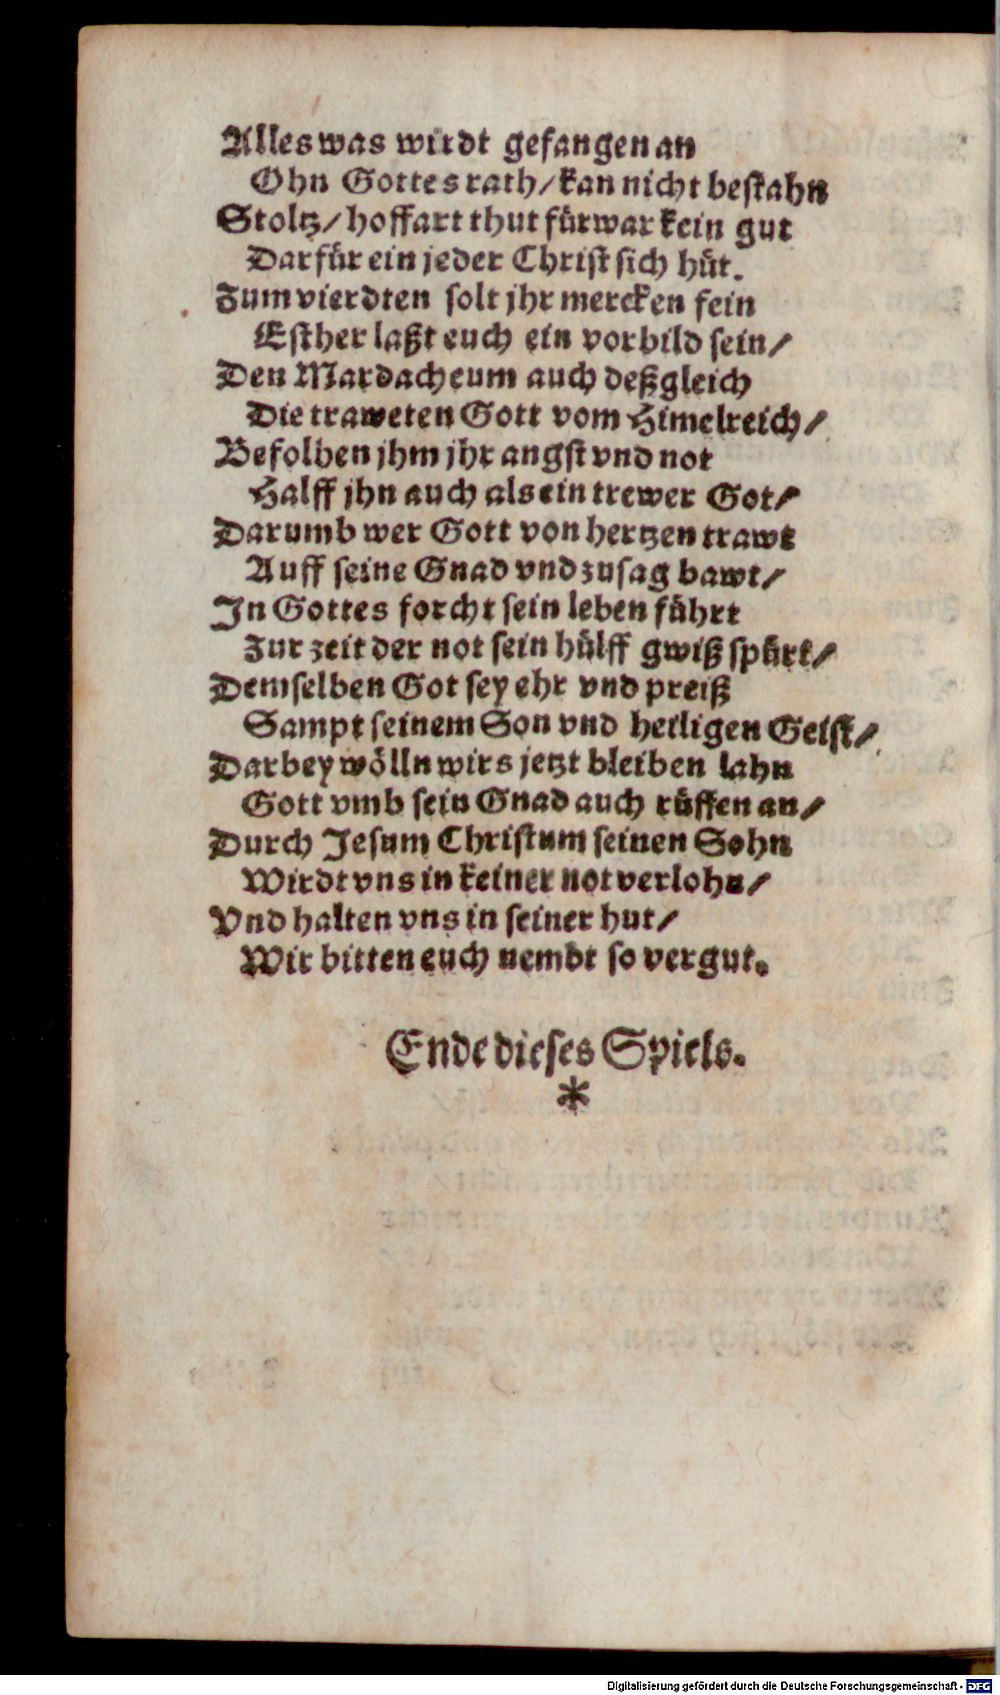 Alles was wirdt gefangen an
Ohn Gottes rath/ kan nicht bestahn
Stoltz/ hoffart thut fürwar kein gut
Darfür ein jeder Christ sich hüt.
Zum vierdten solt jhr mercken fein
Esther laßt euch ein vorbild sein/
Den Mardacheum auch deßgleich
Die traweten Gott vom Himelreich/
Befolhen jhm jhr angst vnd not
Halff jhn auch als ein trewer Got/
Darumb wer Gott von hertzen trawt
Auff seine Gnad vnd zusag bawt/
In Gottes forcht sein leben führt
Zur zeit der not sein hülff gwiß spürt/
Demselben Got sey ehr vnd preiß
Sampt seinem Son vnd heiligen Geist/
Darbey wölln wirs jetzt bleiben lahn
Gott vmb sein Gnad auch rüffen an/
Durch Jesum Christum seinen Sohn
Wirdt vns in keiner not verlohn/
Vnd halten vns in seiner hut/
Wir bitten euch nemdt so vergut.
Ende dieses Spiels.
*
Digitalisierung gefördert durch die Deutsche Forschungsgemeinschaft - DFG